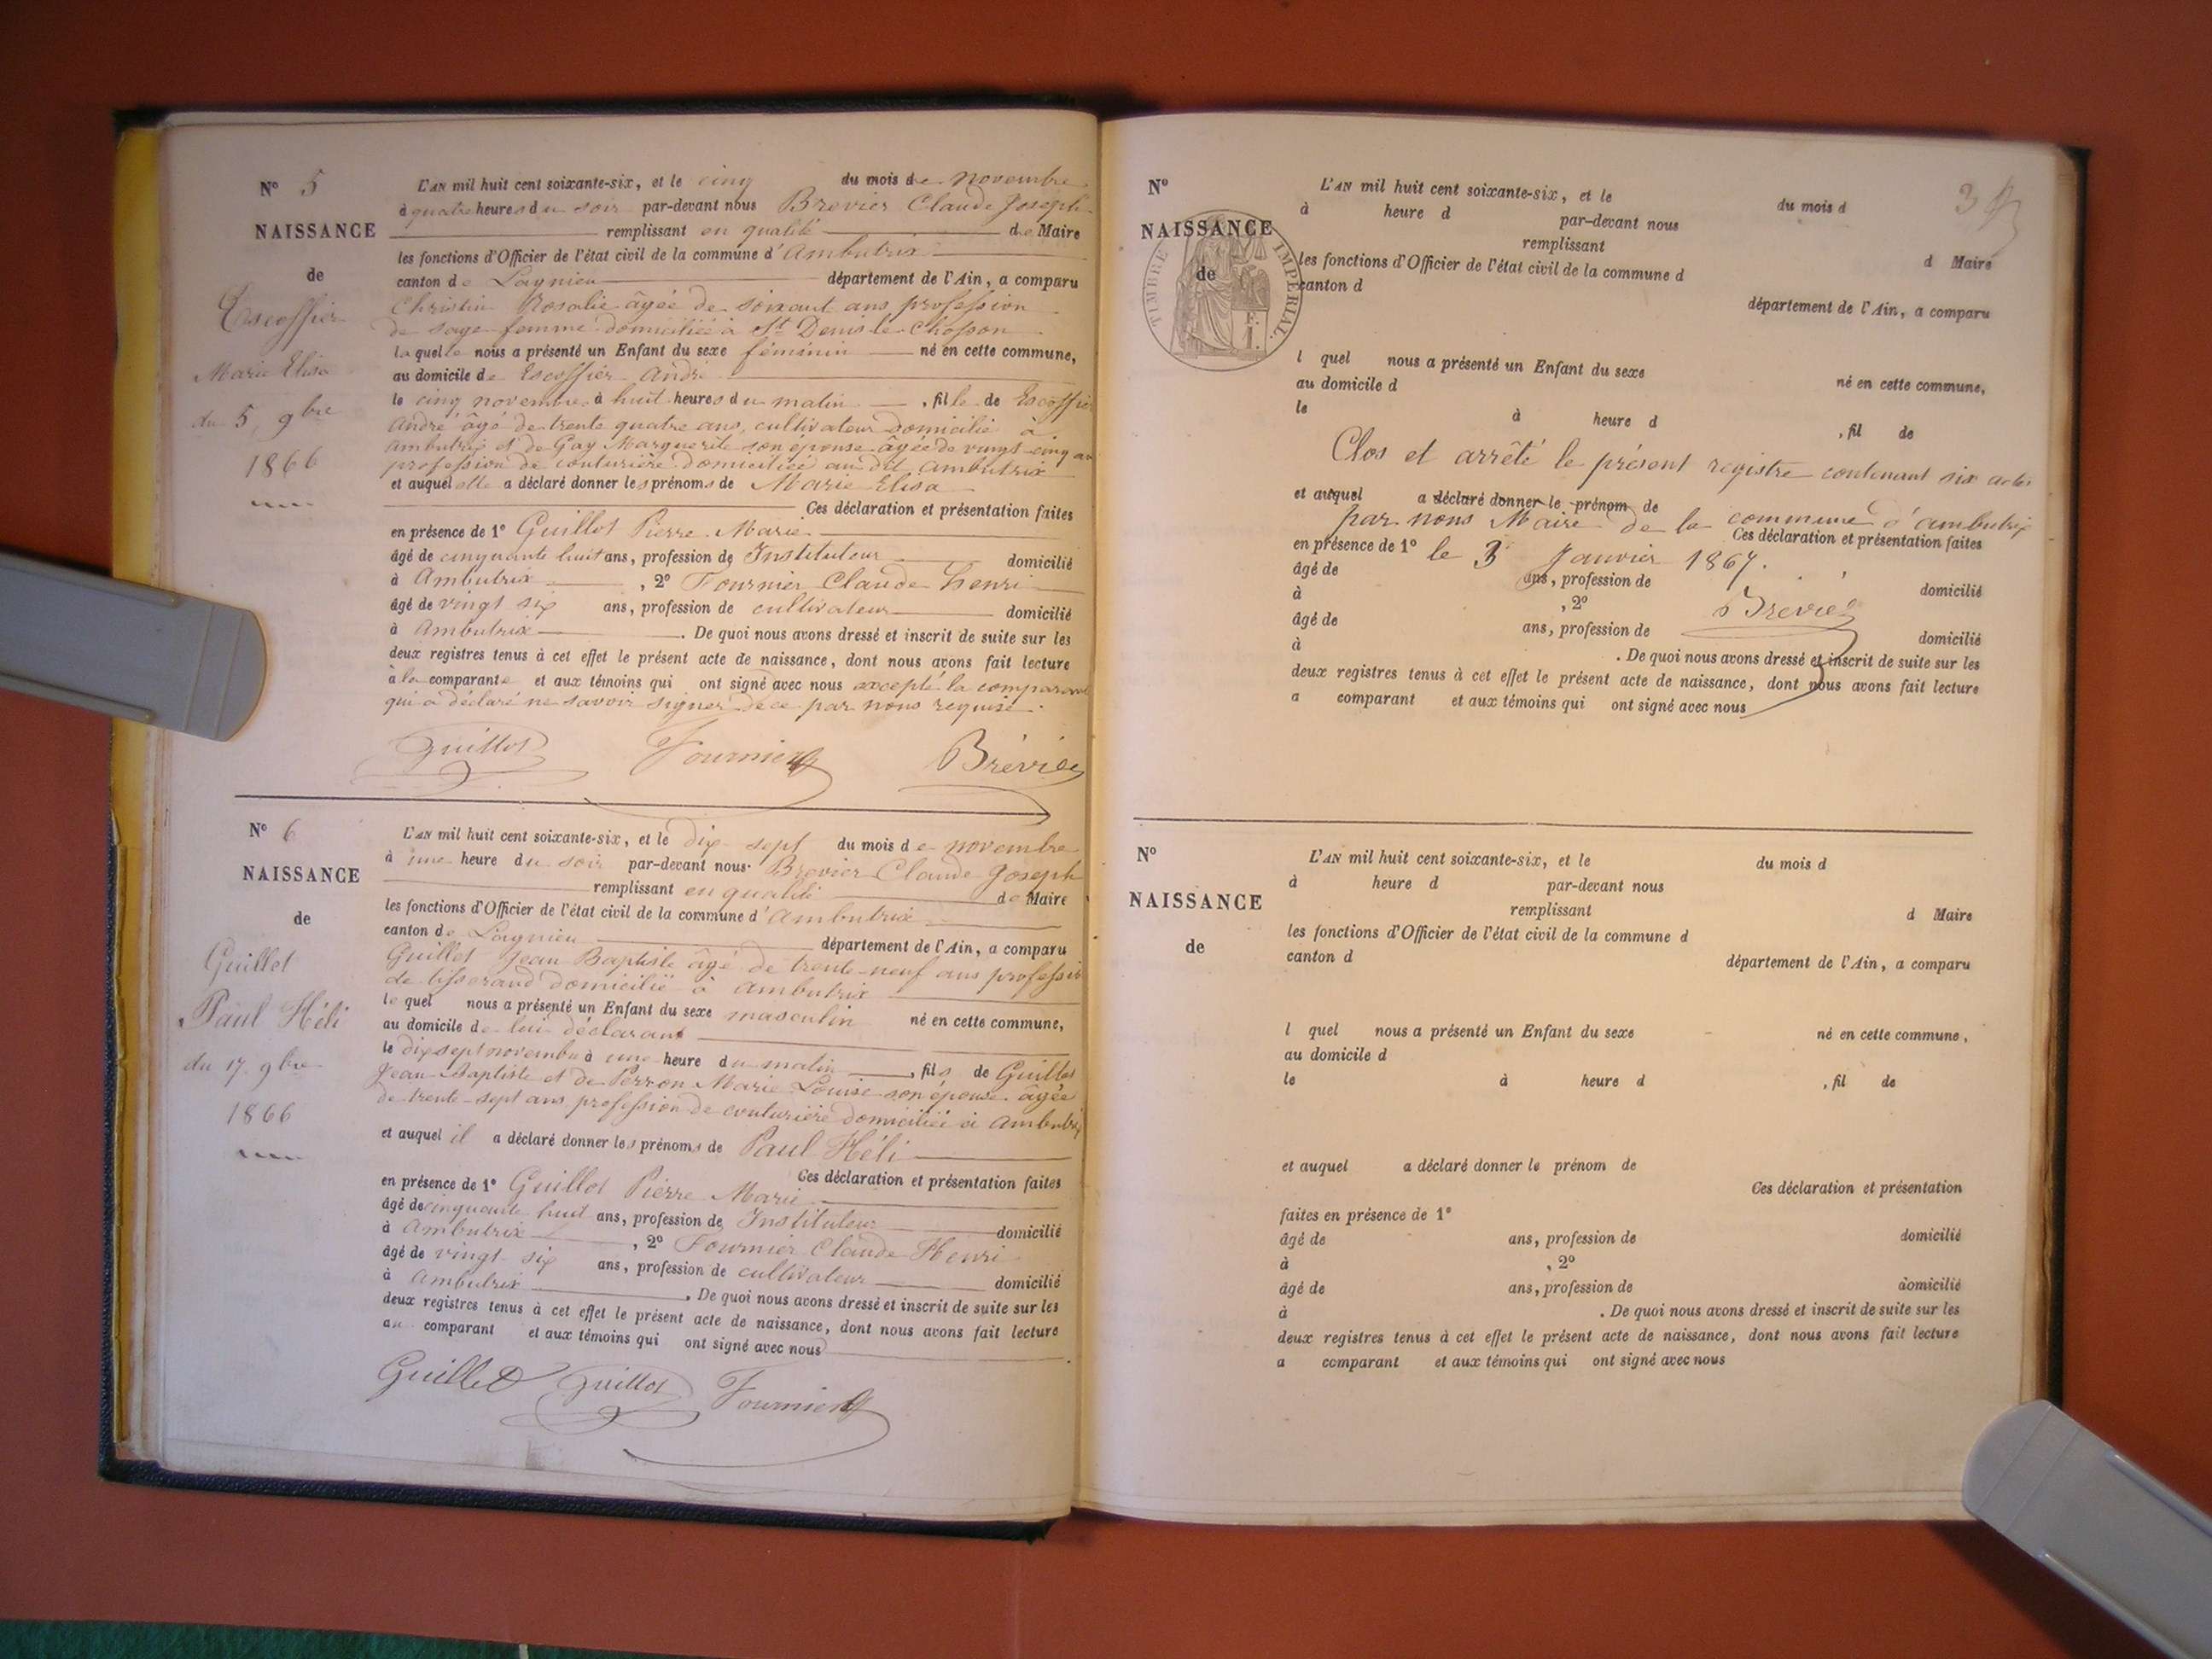 N° 5
NAISSANCE
de
Escoffier
Marie Elisa
du 5 9bre
1866
L'AN mil huit cent soixante-six, et le cinq du mois de novembre
à quatre heures du soir par-devant nous Brevier Claude Joseph
remplissant en qualité de Maire
les fonctions d'Officier de l'état civil de la commune d'Ambutrix
canton de Lagnieu département de l'Ain, a comparu
Christin Rosalie âgée de soixant ans profession
de sage-femme domiciliée à St Denis-le-Chosson
laquelle nous a présenté un Enfant du sexe féminin né en cette commune,
au domicile de Escoffier André
le cinq novembre à huit heures du matin, fille de Escoffier
André âgé de trente quatre ans, cultivateur domicilié à
ambutrix et de Gay Marguerite son épouse âgée de vingt-cinq ans
profession de couturière domiciliée au dit ambutrix
et auquel elle a déclaré donner les prénoms de Marie Elisa
Ces déclaration et présentation faites
en présence de 1° Guillot Pierre Marie
âgé de cinquante huit ans, profession de Instituteur domicilié
à Ambutrix, 2° Fournier Claude Henri
âgé de vingt six ans, profession de cultivateur domicilié
à Ambutrix. De quoi nous avons dressé et inscrit de suite sur les
deux registres tenus à cet effet le présent acte de naissance, dont nous avons fait lecture
à la comparante et aux témoins qui ont signé avec nous excepté la comparante
qui a déclaré ne savoir signer de ce par nous requise.
Guillot Fournier Brévier
N° 6
NAISSANCE
de
Guillet
Paul Héli
du 17 9bre
1866
L'AN mil huit cent soixante-six, et le dix sept du mois de novembre
à une heure du soir par-devant nous Brevier Claude Joseph
remplissant en qualité de Maire
les fonctions d'Officier de l'état civil de la commune d'Ambutrix
canton de Lagnieu département de l'Ain, a comparu
Guillet Jean Baptiste âgé de trente-neuf ans profession
de tisserand domicilié à ambutrix
lequel nous a présenté un Enfant du sexe masculin né en cette commune,
au domicile de lui déclarant
le dix sept novembre à une heure du matin, fils de Guillet
Jean-Baptiste et de Perron Marie Louise son épouse âgée
de trente-sept ans profession de couturière domiciliée à Ambutrix
et auquel il a déclaré donner les prénoms de Paul Héli
Ces déclaration et présentation faites
en présence de 1° Guillot Pierre Marie
âgé de cinquante huit ans, profession de Instituteur domicilié
à Ambutrix, 2° Fournier Claude Henri
âgé de vingt six ans, profession de cultivateur domicilié
à Ambutrix. De quoi nous avons dressé et inscrit de suite sur les
deux registres tenus à cet effet le présent acte de naissance, dont nous avons fait lecture
au comparant et aux témoins qui ont signé avec nous
Guillet Guillot Fournier
3
N°
NAISSANCE
de
TIMBRE IMPÉRIAL
L'AN mil huit cent soixante-six, et le du mois d
à heure d par-devant nous
remplissant d Maire
les fonctions d'Officier de l'état civil de la commune d
canton d département de l'Ain, a comparu
l quel nous a présenté un Enfant du sexe né en cette commune,
au domicile d
le à heure d , fil de
Clos et arrêté le présent registre contenant six actes
et auquel a déclaré donner le prénom de
par nous Maire de la commune d'ambutrix
Ces déclaration et présentation faites
en présence de 1° le 3 Janvier 1867.
âgé de ans, profession de domicilié
à , 2° Brévier
âgé de ans, profession de domicilié
à . De quoi nous avons dressé et inscrit de suite sur les
deux registres tenus à cet effet le présent acte de naissance, dont nous avons fait lecture
a comparant et aux témoins qui ont signé avec nous
N°
NAISSANCE
de
L'AN mil huit cent soixante-six, et le du mois d
à heure d par-devant nous
remplissant d Maire
les fonctions d'Officier de l'état civil de la commune d
canton d département de l'Ain, a comparu
l quel nous a présenté un Enfant du sexe né en cette commune,
au domicile d
le à heure d , fil de
et auquel a déclaré donner le prénom de
Ces déclaration et présentation
faites en présence de 1°
âgé de ans, profession de domicilié
à , 2°
âgé de ans, profession de domicilié
à . De quoi nous avons dressé et inscrit de suite sur les
deux registres tenus à cet effet le présent acte de naissance, dont nous avons fait lecture
a comparant et aux témoins qui ont signé avec nous